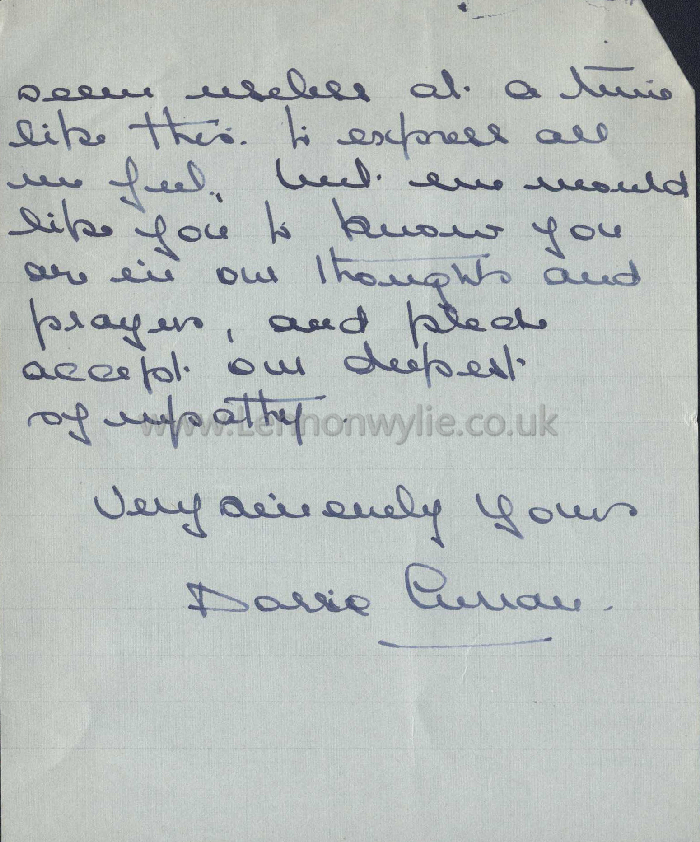 seem useless at a time
like this. to express all
we feel, but we would
like you to know you
are in our thoughts and
prayers, and please
accept our deepest
sympathy.
www.Lennonwylie.co.uk
Very sincerely yours
Curran.